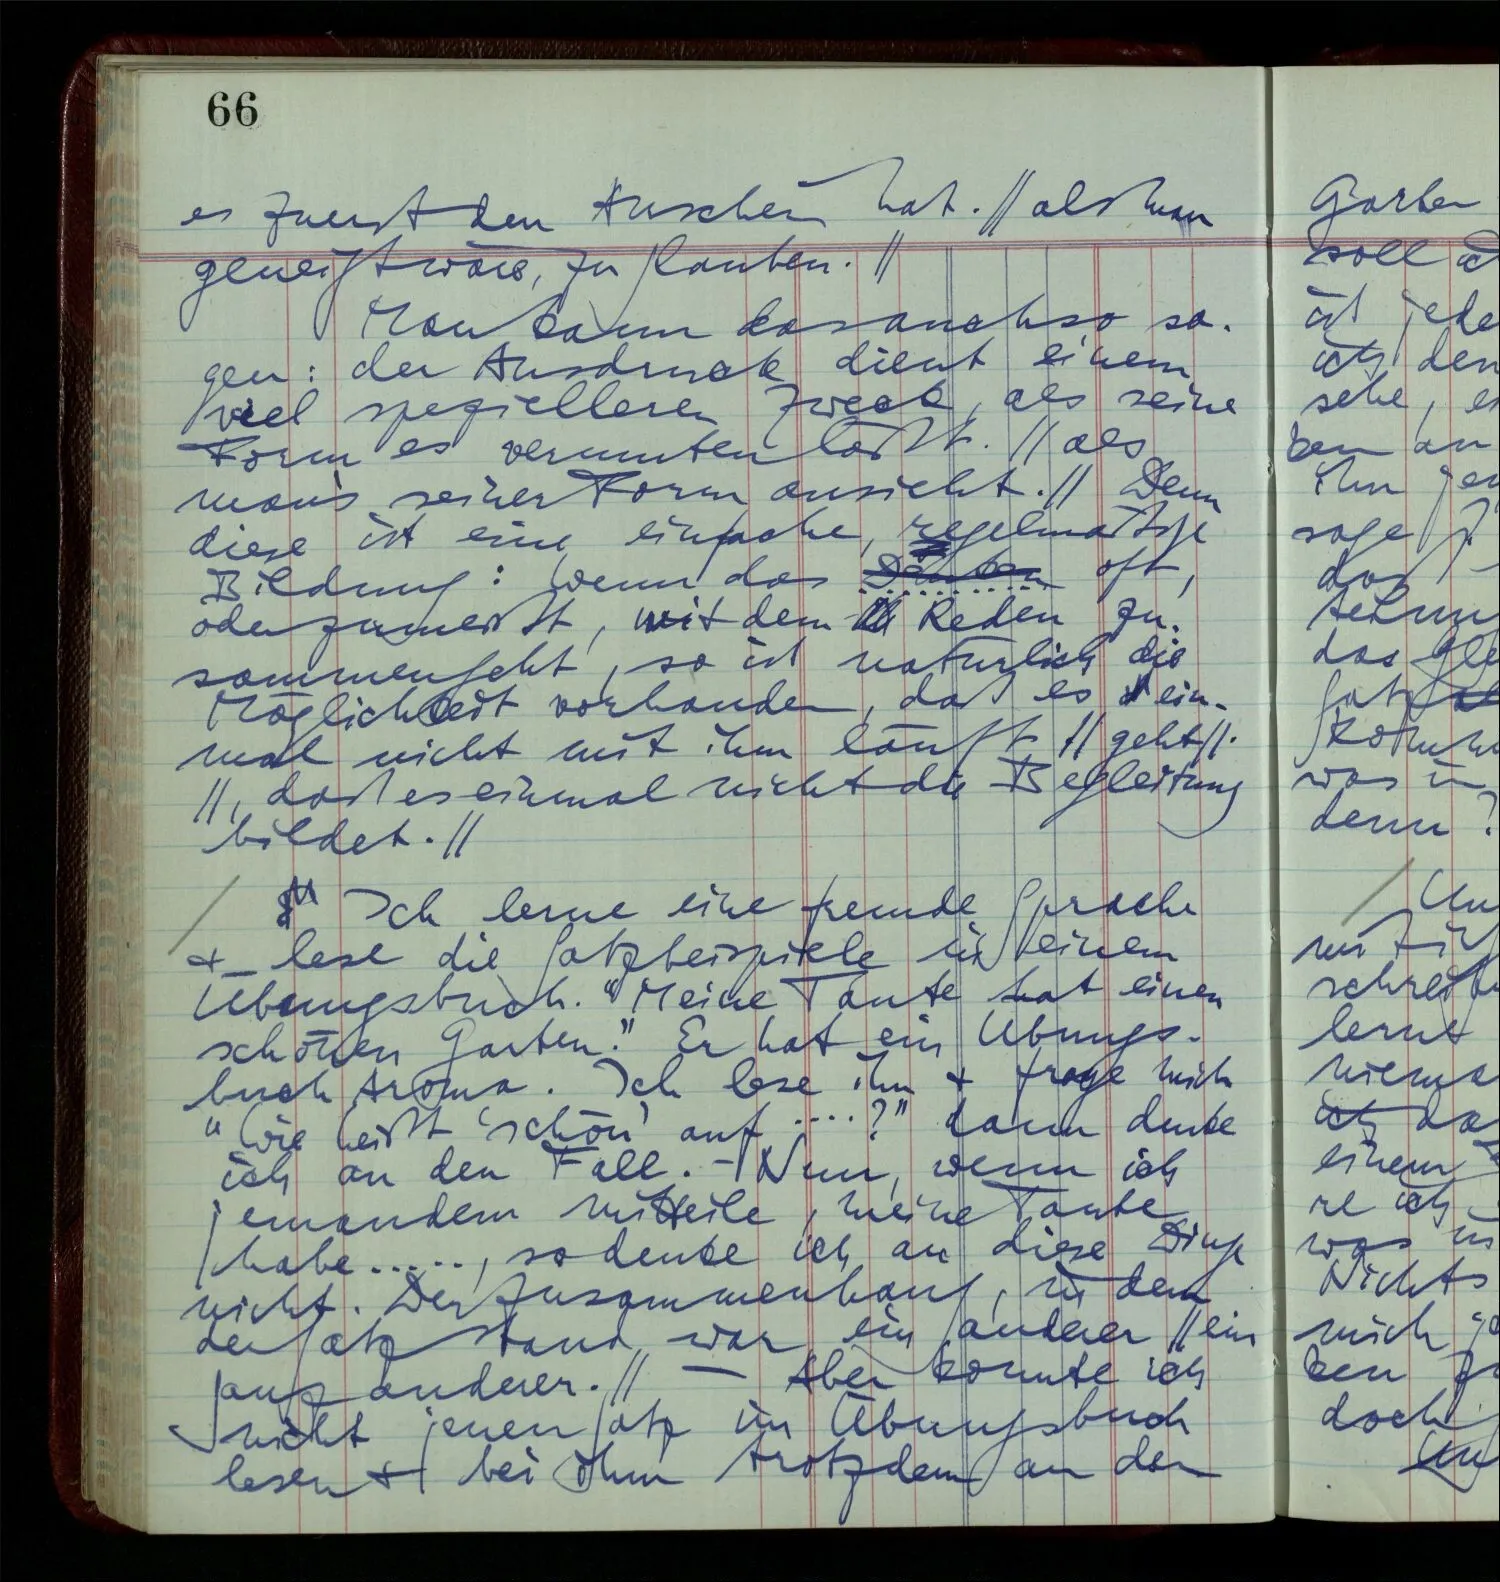 66
es zuerst den Anschein hat. // als man
geneigt wäre, zu glauben. //
Man kann das auch so sa-
gen: der Ausdruck dient einem
viel spezielleren Zweck, als seine
Form es vermuten läßt. // als
man's seiner Form ansieht. // Denn
diese ist eine einfache, regelmäßige
Bildung: wenn das Denken oft,
oder zumeist, mit dem Reden zu-
sammengeht, so ist natürlich die
Möglichkeit vorhanden, daß es ein-
mal nicht mit ihm läuft // geht //.
//, daß es einmal nicht die Begleitung
bildet. //
/ Ich lerne eine fremde Sprache
& lese die Satzbeispiele in einem
Übungsbuch. "Meine Tante hat einen
schönen Garten." Er hat ein Übungs-
buch Aroma. Ich lese ihn & frage mich
"wie heißt 'schön' auf ....?" dann denke
ich an den Fall. – Nun, wenn ich
jemandem mitteile, meine Tante
habe ....., so denke ich an diese Dinge
nicht. Der Zusammenhang, in dem
der Satz stand, war ein anderer // ein
ganz anderer. // – Aber konnte ich
nicht jenen Satz im Übungsbuch
lesen & bei ihm trotzdem an den
Garten
soll
ist
ich den
sehe,
ken an
ihn
sage
das
das
was
denn?
/
lernt
einem
re ich
was
Nichts
mich
ken
doch